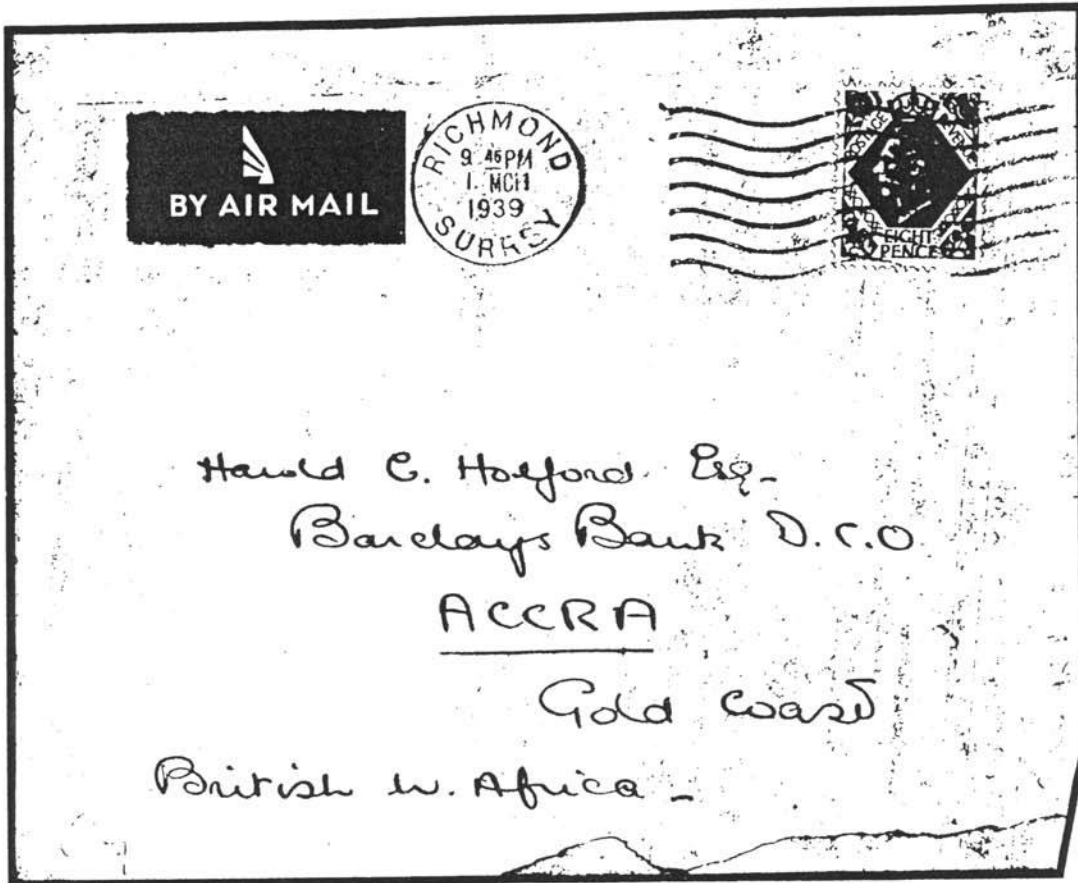 BY AIR MAIL
RICHMOND
9 45PM
1 MCH
1939
SURREY
POSTAGE REVENUE
EIGHT
PENCE
Harold C. Holford Esq.
Barclays Bank D.C.O
ACCRA
Gold Coast
British W. Africa -